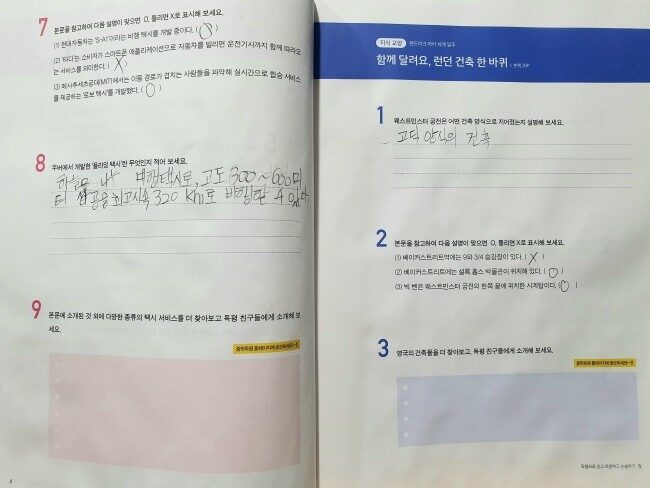 7 본문을 참고하여 다음 설명이 맞으면 O, 틀리면 X로 표시해 보세요.
(1) 현대자동차는 'S-A1'이라는 비행 택시를 개발 중이다. (O)
(2) '타다'는 소비자가 스마트폰 애플리케이션으로 자동차를 빌리면 운전기사까지 함께 따라오
는 서비스를 의미한다. (X)
(3) 매사추세츠공대(MIT)에서는 이동 경로가 겹치는 사람들을 파악해 실시간으로 합승 서비스
를 제공하는 '로보 택시'를 개발했다. (O)
8 우버에서 개발한 '플라잉 택시'란 무엇인지 적어 보세요.
하늘을 나는 비행택시로, 고도 300~600미
터 상공을 최고시속 320km로 비행할 수 있다.
9 본문에 소개된 것 외에 다양한 종류의 택시 서비스를 더 찾아보고 독평 친구들에게 소개해 보
세요.
4
지식 교양
랜드마크 따라 세계 일주
함께 달려요, 런던 건축 한 바퀴 | 본책 20P
1 웨스트민스터 궁전은 어떤 건축 양식으로 지어졌는지 설명해 보세요.
고딕 양식의 건축
2 본문을 참고하여 다음 설명이 맞으면 O, 틀리면 X로 표시해 보세요.
(1) 베이커스트리트역에는 9와 3/4 승강장이 있다. (X)
(2) 베이커스트리트에는 셜록 홈스 박물관이 위치해 있다. (O)
(3) 빅 벤은 웨스트민스터 궁전의 한쪽 끝에 위치한 시계탑이다. (O)
3 영국의 건축물을 더 찾아보고, 독평 친구들에게 소개해 보세요.
독평으로 읽고 토론하고 논술하기 5